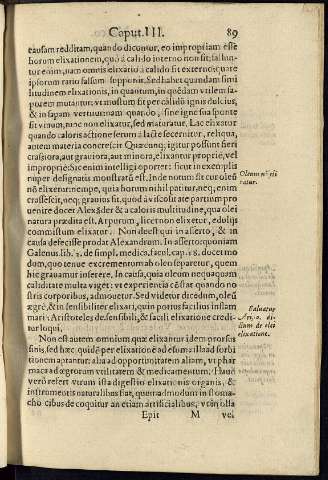 Caput. III. 89
causam redditam, quando dicuntur, eo impropriam esse
horum elixationem, quò à calido interno non sit; falluntur
enim, nam omnis elixatio à calido fit externo; quare
ipsorum ratio falsum supponit. Sed habet quandam similitudinem
elixationis, in quantum, in quędam vtilem sapuem
mutantur: vt mustum fit per calidũ ignis dulcius,
& in sapam vertitur
nam quando, sine igne sua sponte
fit vinum, tunc non elixatur, sed maturatur. Lac elixatur
quando caloris actione serum à lacte secernitur, reliqua,
autem materia concrescit. Quæcunq; igitur possunt fieri
crassiora, aut grauiora, aut minora, elixantur propriè, vel
impropriè: sic enim intelligi oportet: sicut in exemplis
nuper designatis monstratũ est. Inde notum fit cur oleũ
nõ elixetur: nempe, quia horum nihil patitur, neq; enim
crassescit, neq; grauius fit, quod à viscositate partim prouenire
docet Alexãder & à caloris multitudine, qua olei
natura prædita est. At purum, licet non elixetur, edulijs
commistum elixatur. Non duo sequi in asserto, & in
causa defecisse prodat Alexandrum. In asserto: quoniam
Galenus lib. 2. de simpl. medica. facul. cap. 18. docet modum,
quo tenue excrementum ab oleo separetur, quem
hic grauamur inserere. In causa, quia oleum nequaquam
caliditate multa viget: vt experientia cõstat quando nostris
corporibus, admouetur. Sed videtur dicedum, oleũ
ægrè, & insensibiliter elixari, quin potius facilius inflammari:
Aristoteles de sensibili, & facili elixatione creditur
loqui.
Non est autem omnium quæ elixantur idem prorsus
finis, sed hæc quidẽ per elixationẽ ad esum: alia ad sorbitionem
aptantur: alia ad opportunitatem aliam, vt pharmaca
ad ægrorum vtilitatem & medicamentum. Haud
verò refert vtrum ista digestio elixationis organis, &
instrumentis naturalibus fiat, quemadmodum in stomacho
cibus decoquitur an etiam artificialibus, vt in olla
Epit M vel
Oleum nõ elixatur.
Saluatur